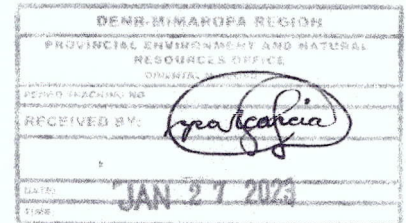 DENR-MIMAROPA REGION
PROVINCIAL ENVIRONMENT AND NATURAL
RESOURCES OFFICE
RECEIVED BY:
DATE: JAN 27 2023
TIME